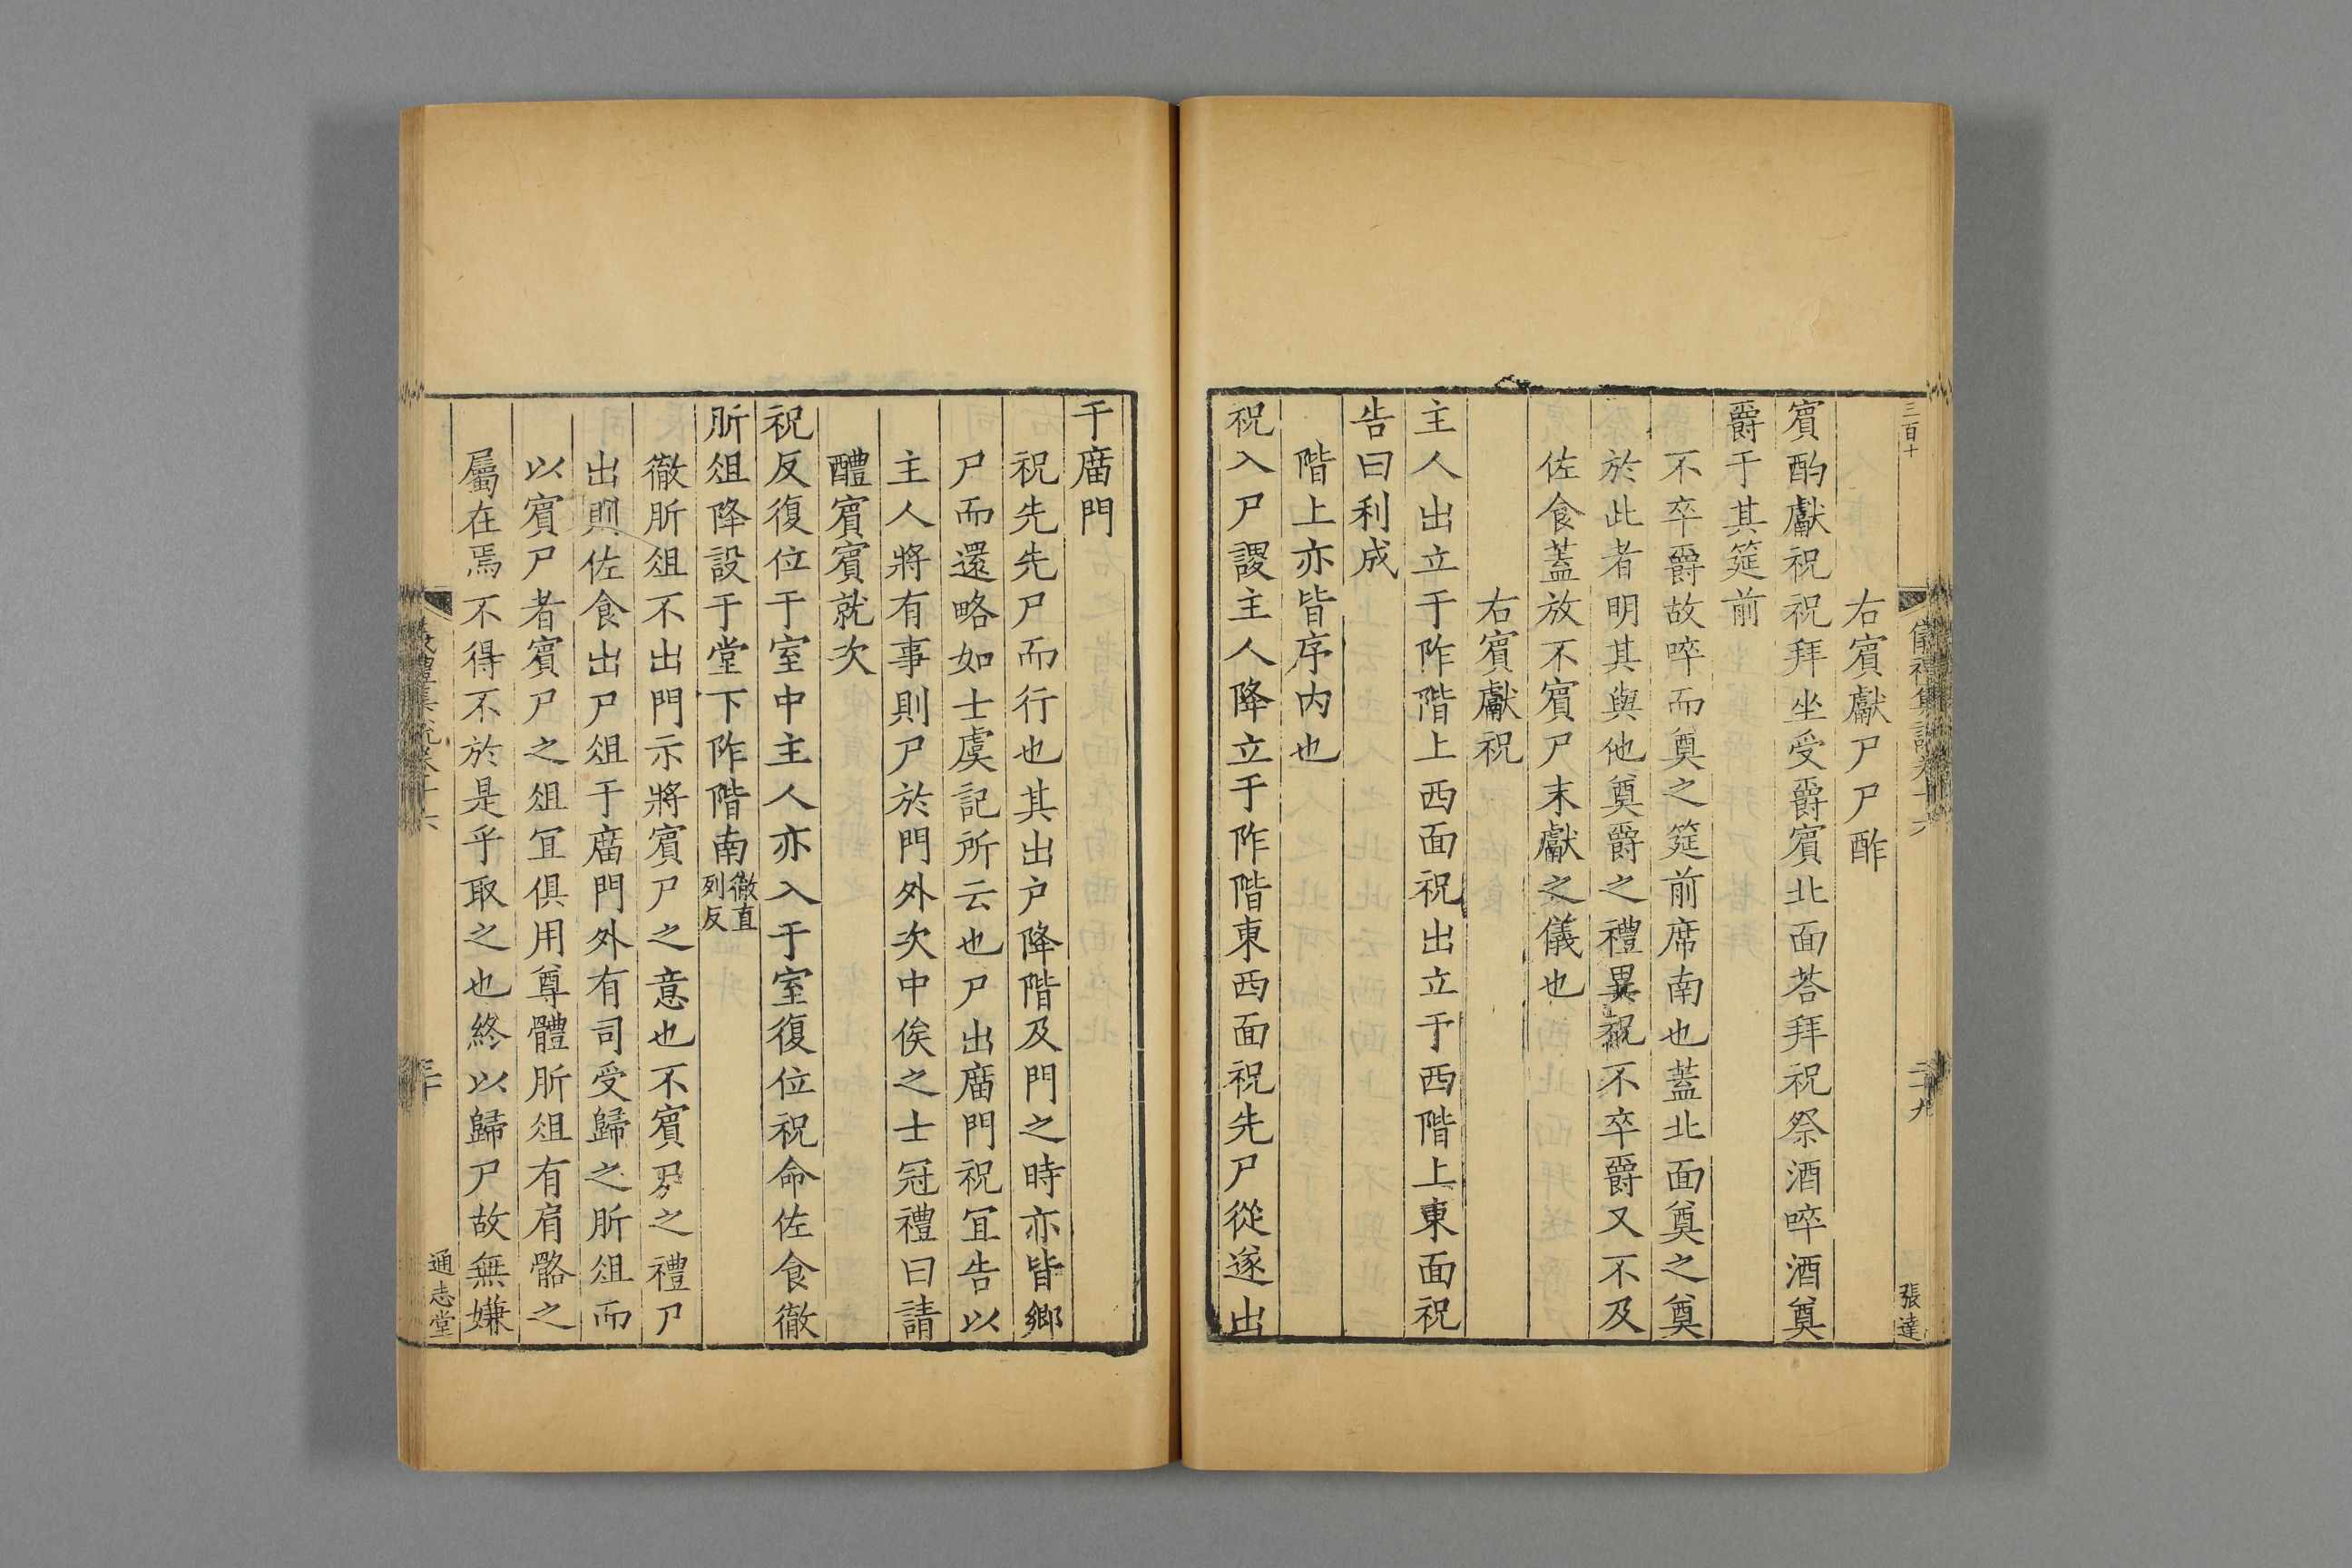 三百十
儀禮集說卷十六
二十九
張達
右賓獻尸尸酢
賓酌獻祝祝拜坐受爵賓北面荅拜祝祭酒啐酒奠
爵于其筵前
不卒爵故啐而奠之筵前席南也蓋北面奠之奠
於此者明其與他奠爵之禮異祝不卒爵又不及
佐食蓋放不賓尸末獻之儀也
右賓獻祝
主人出立于阼階上西面祝出立于西階上東面祝
告曰利成
階上亦皆序內也
祝入尸謖主人降立于阼階東西面祝先尸從遂出
于廟門
祝先先尸而行也其出户降階及門之時亦皆鄉
尸而還略如士虞記所云也尸出廟門祝宜告以
主人將有事則尸於門外次中俟之士冠禮曰請
醴賓賓就次
祝反復位于室中主人亦入于室復位祝命佐食徹
肵俎降設于堂下阼階南徹直列反
徹肵俎不出門示將賓尸之意也不賓尸之禮尸
出則佐食出尸俎于廟門外有司受歸之肵俎而
以賓尸者賓尸之俎宜俱用尊體肵俎有肩骼之
屬在焉不得不於是乎取之也終以歸尸故無嫌
三十
通志堂